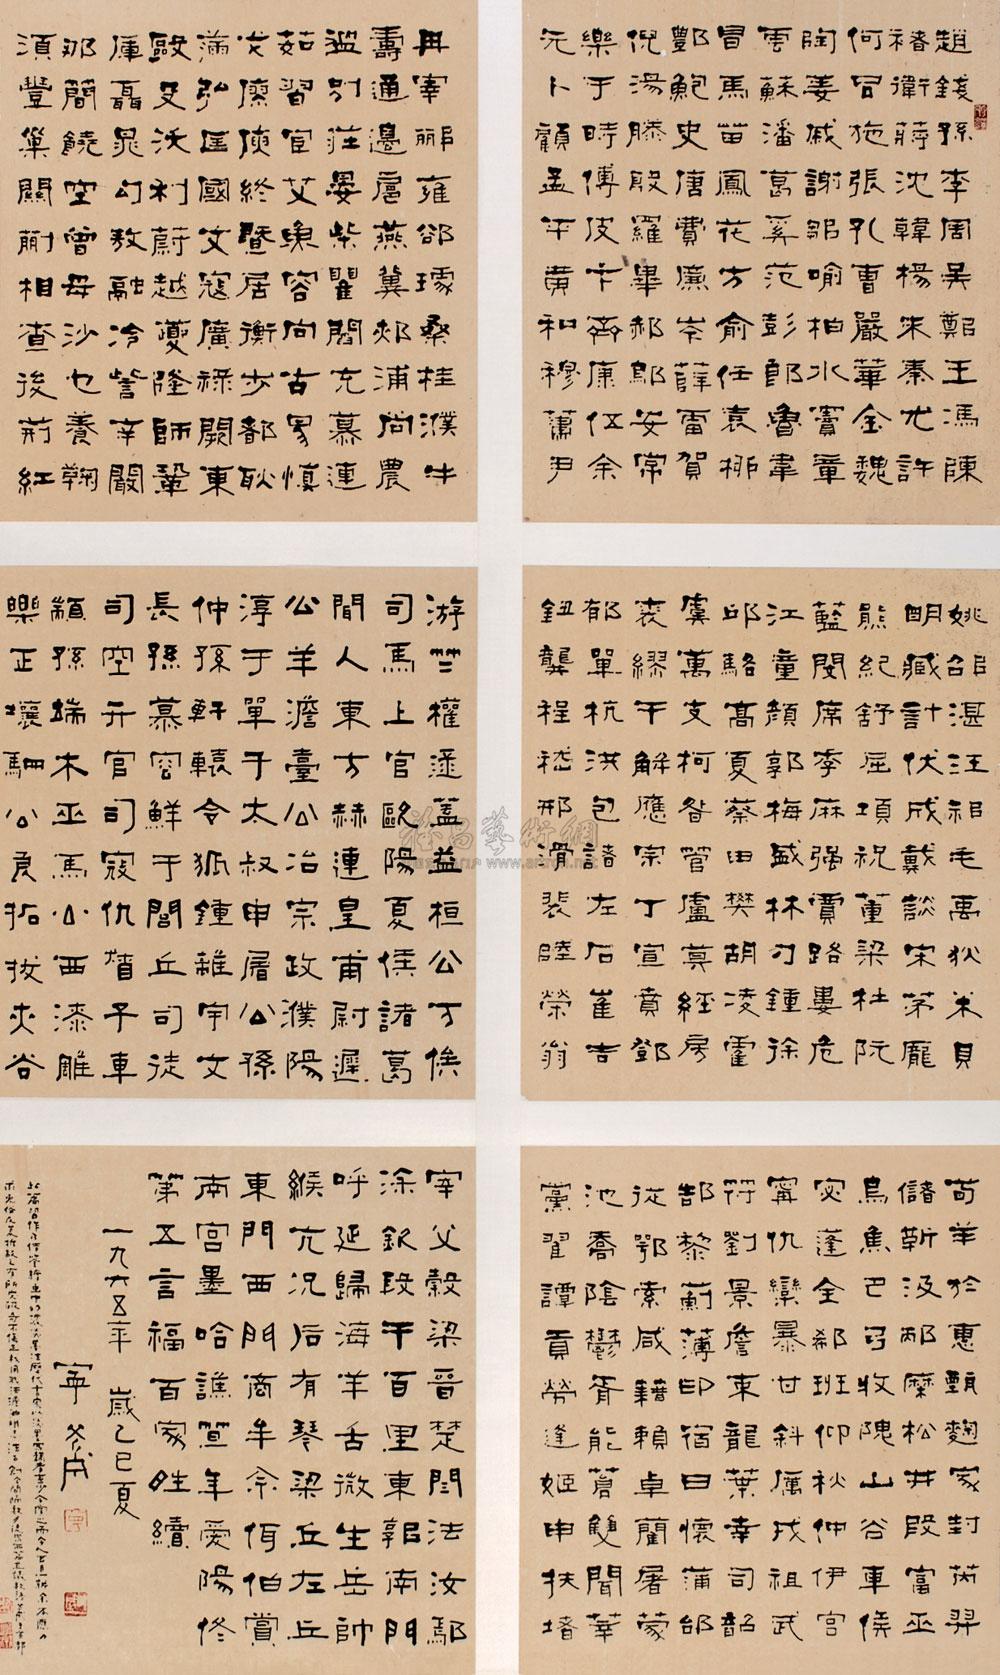 趙錢孫李周吳鄭王馮陳
褚衛蔣沈韓楊朱秦尤許
何呂施張孔曹嚴華金魏
陶姜戚謝鄒喻柏水竇章
雲蘇潘葛奚范彭郎魯韋
昌馬苗鳳花方俞任袁柳
酆鮑史唐費廉岑薛雷賀
倪湯滕殷羅畢郝鄔安常
樂于時傅皮卞齊康伍余
元卜顧孟平黃和穆蕭尹
姚邵湛汪祁毛禹狄米貝
明臧計伏成戴談宋茅龐
熊紀舒屈項祝董梁杜阮
藍閔席季麻强賈路婁危
江童顏郭梅盛林刁鍾徐
邱駱高夏蔡田樊胡凌霍
虞萬支柯昝管盧莫經房
裘繆干解應宗丁宣賁鄧
郁單杭洪包諸左石崔吉
鈕龔程嵇邢滑裴陸榮翁
荀羊於惠甄麴家封芮羿
儲靳汲邴糜松井段富巫
烏焦巴弓牧隗山谷車侯
宓蓬全郗班仰秋仲伊宮
甯仇欒暴甘斜厲戎祖武
符劉景詹束龍葉幸司韶
郜黎薊薄印宿白懷蒲邰
從鄂索咸籍賴卓藺屠蒙
池喬陰鬱胥能蒼雙聞莘
黨翟譚貢勞逄姬申扶堵
冉宰酈雍郤璩桑桂濮牛
壽通邊扈燕冀郟浦尚農
溫別莊晏柴瞿閻充慕連
茹習宦艾魚容向古易慎
戈廖庾終暨居衡步都耿
滿弘匡國文寇廣祿闕東
歐殳沃利蔚越夔隆師鞏
厙聶晁勾敖融冷訾辛闞
那簡饒空曾毋沙乜養鞠
須豐巢關蒯相查後荊紅
游竺權逯蓋益桓公万俟
司馬上官歐陽夏侯諸葛
聞人東方赫連皇甫尉遲
公羊澹臺公冶宗政濮陽
淳于單于太叔申屠公孫
仲孫軒轅令狐鍾離宇文
長孫慕容鮮于閭丘司徒
司空亓官司寇仇督子車
顓孫端木巫馬公西漆雕
樂正壤駟公良拓拔夾谷
宰父穀梁晉楚閆法汝鄢
涂欽段干百里東郭南門
呼延歸海羊舌微生岳帥
緱亢況后有琴梁丘左丘
東門西門商牟佘佴伯賞
南宮墨哈譙笪年愛陽佟
第五言福百家姓續
一九六五年 歲乙巳夏
寧斧成
雅昌藝術網